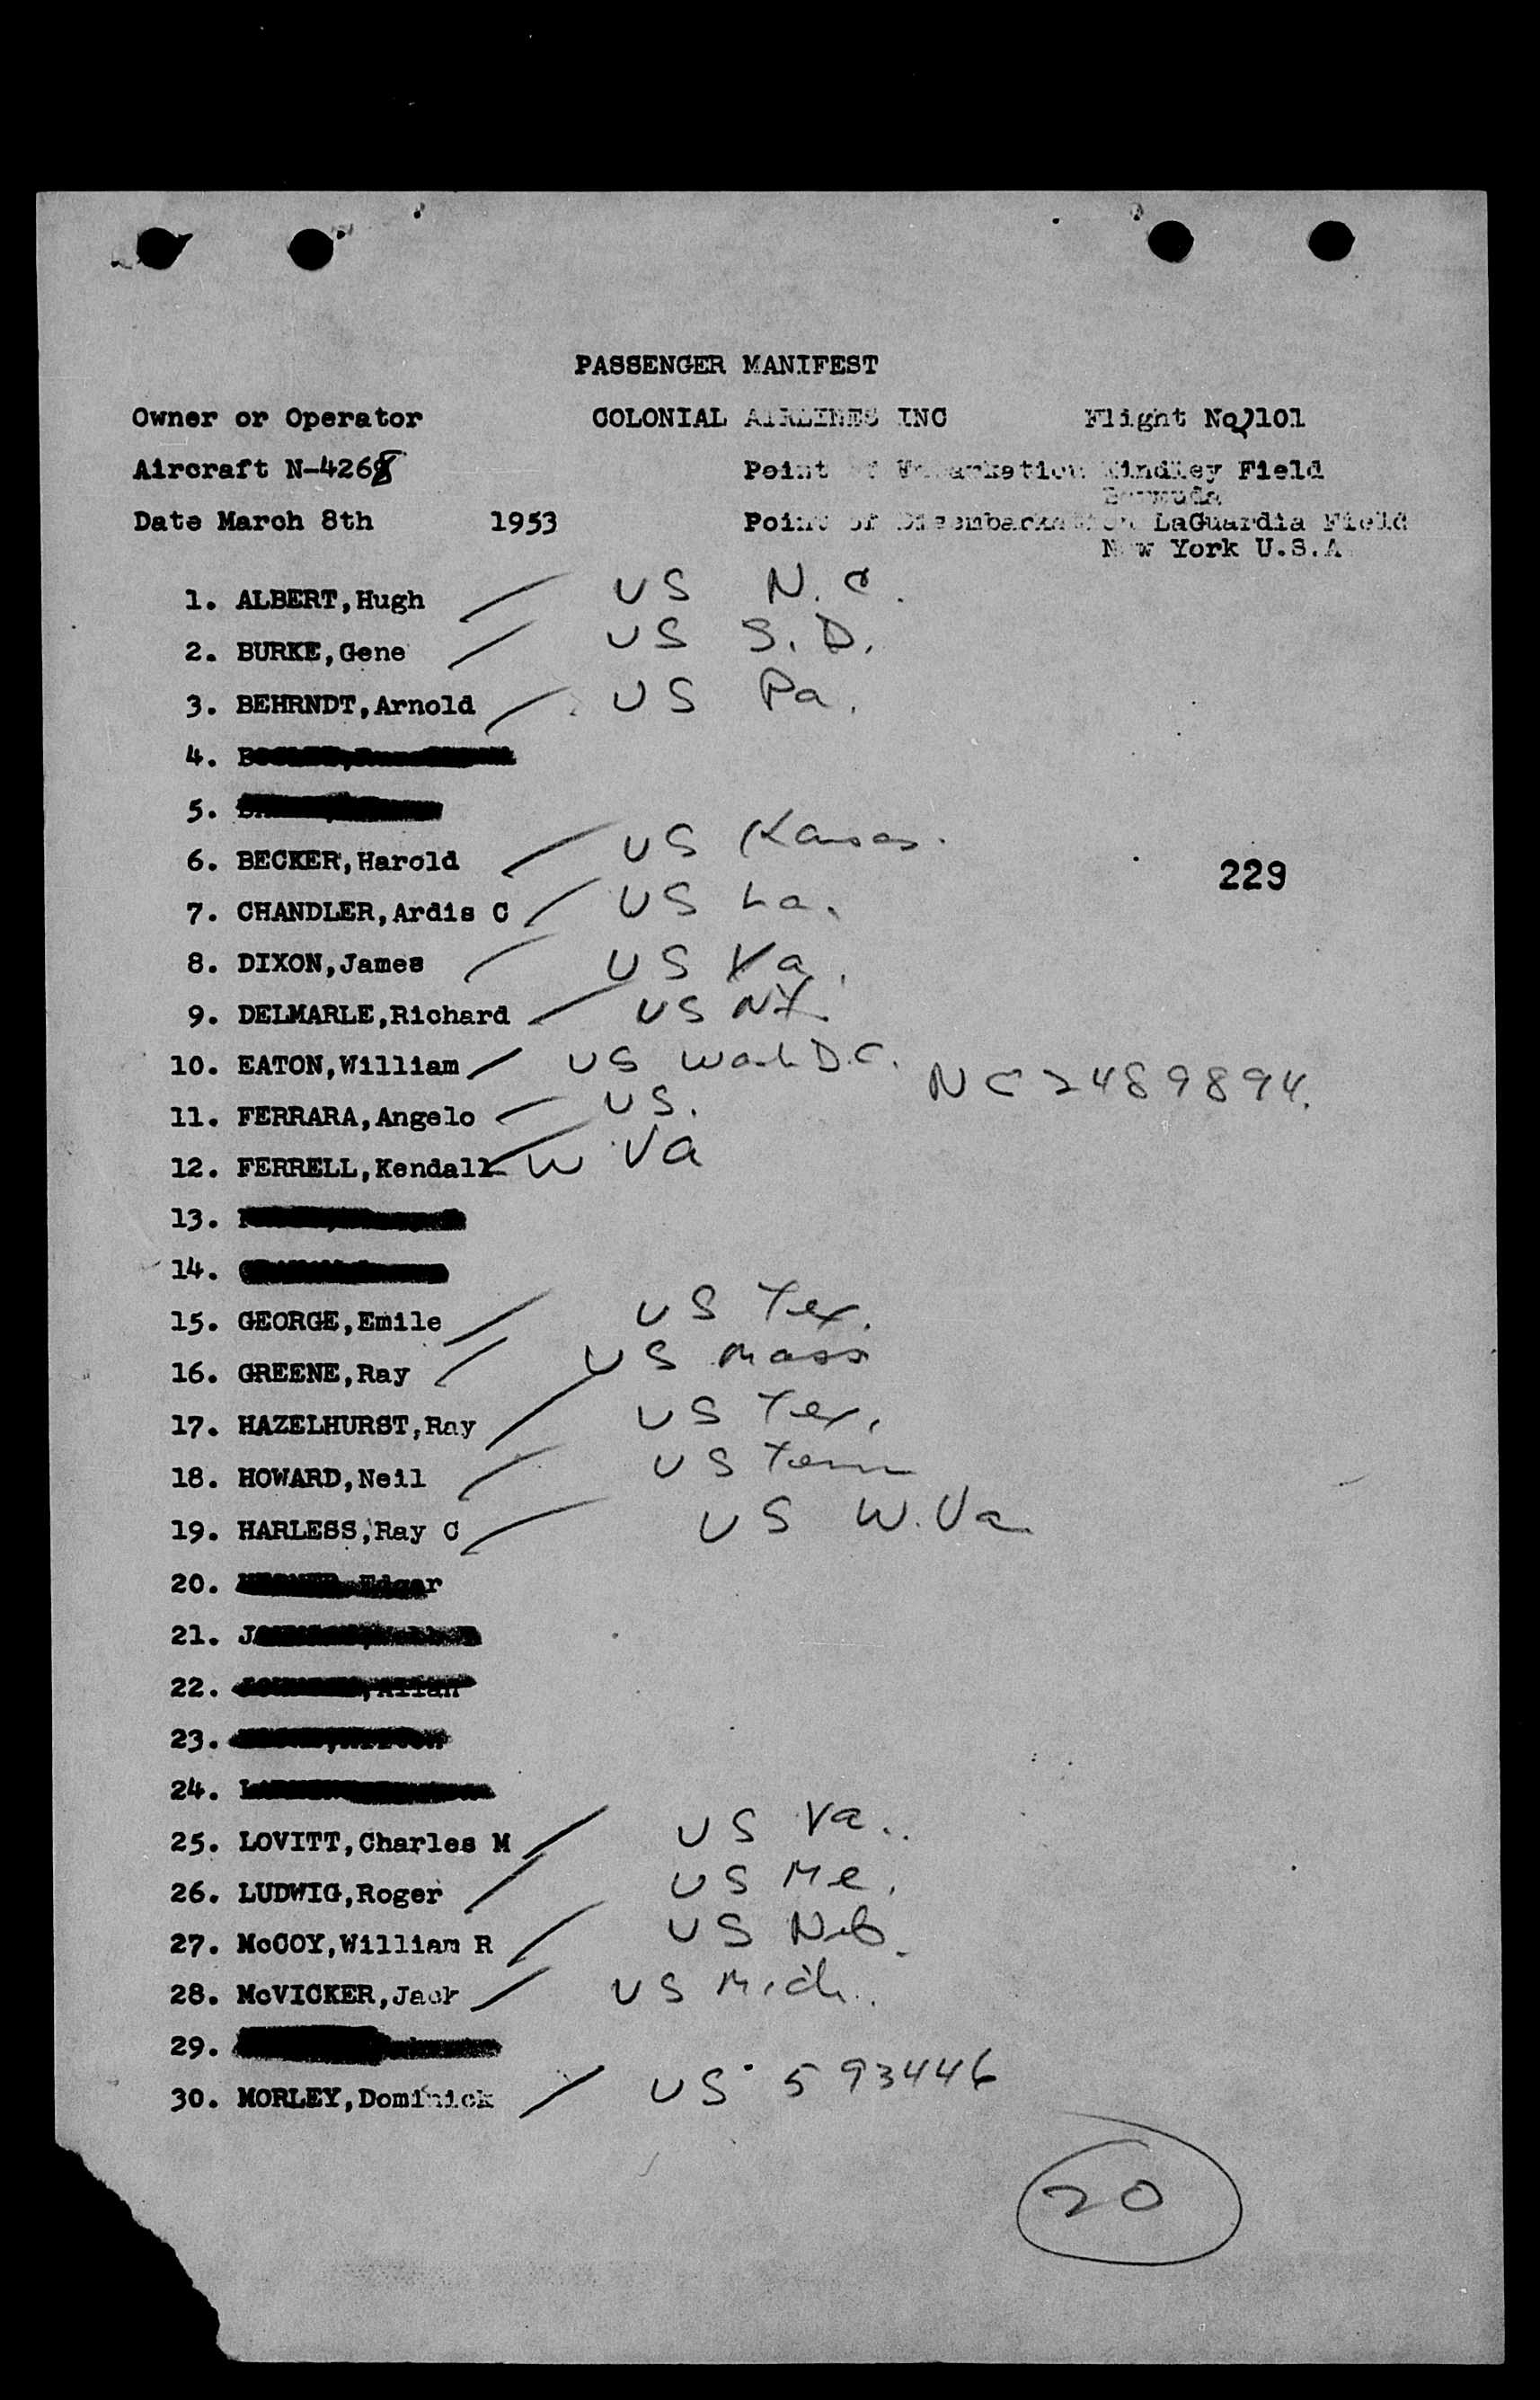 PASSENGER MANIFEST
Owner or Operator COLONIAL AIRLINES INC Flight No 2101
Aircraft N-4268 Point of Embarkation Kindley Field
Bermuda
Date March 8th 1953 Point of Disembarkation LaGuardia Field
New York U.S.A
1. ALBERT,Hugh US N.C.
2. BURKE,Gene US S.D.
3. BEHRNDT,Arnold US Pa.
4.
5.
6. BECKER,Harold US Kansas.
229
7. CHANDLER,Ardis C US La.
8. DIXON,James US Va.
9. DELMARLE,Richard US NY.
10. EATON,William US Wash D.C.
11. FERRARA,Angelo US. NC2489894.
12. FERRELL,Kendall W Va
13.
14.
15. GEORGE,Emile US Tex.
16. GREENE,Ray US Mass
17. HAZELHURST,Ray US Tex.
18. HOWARD,Neil US Tenn
19. HARLESS,Ray C US W.Va.
20. Edgar
21.
22.
23.
24.
25. LOVITT,Charles M US Va.
26. LUDWIG,Roger US Me.
27. McCOY,William R US Neb.
28. McVICKER,Jack US Mich.
29.
30. MORLEY,Dominick US 593446
20